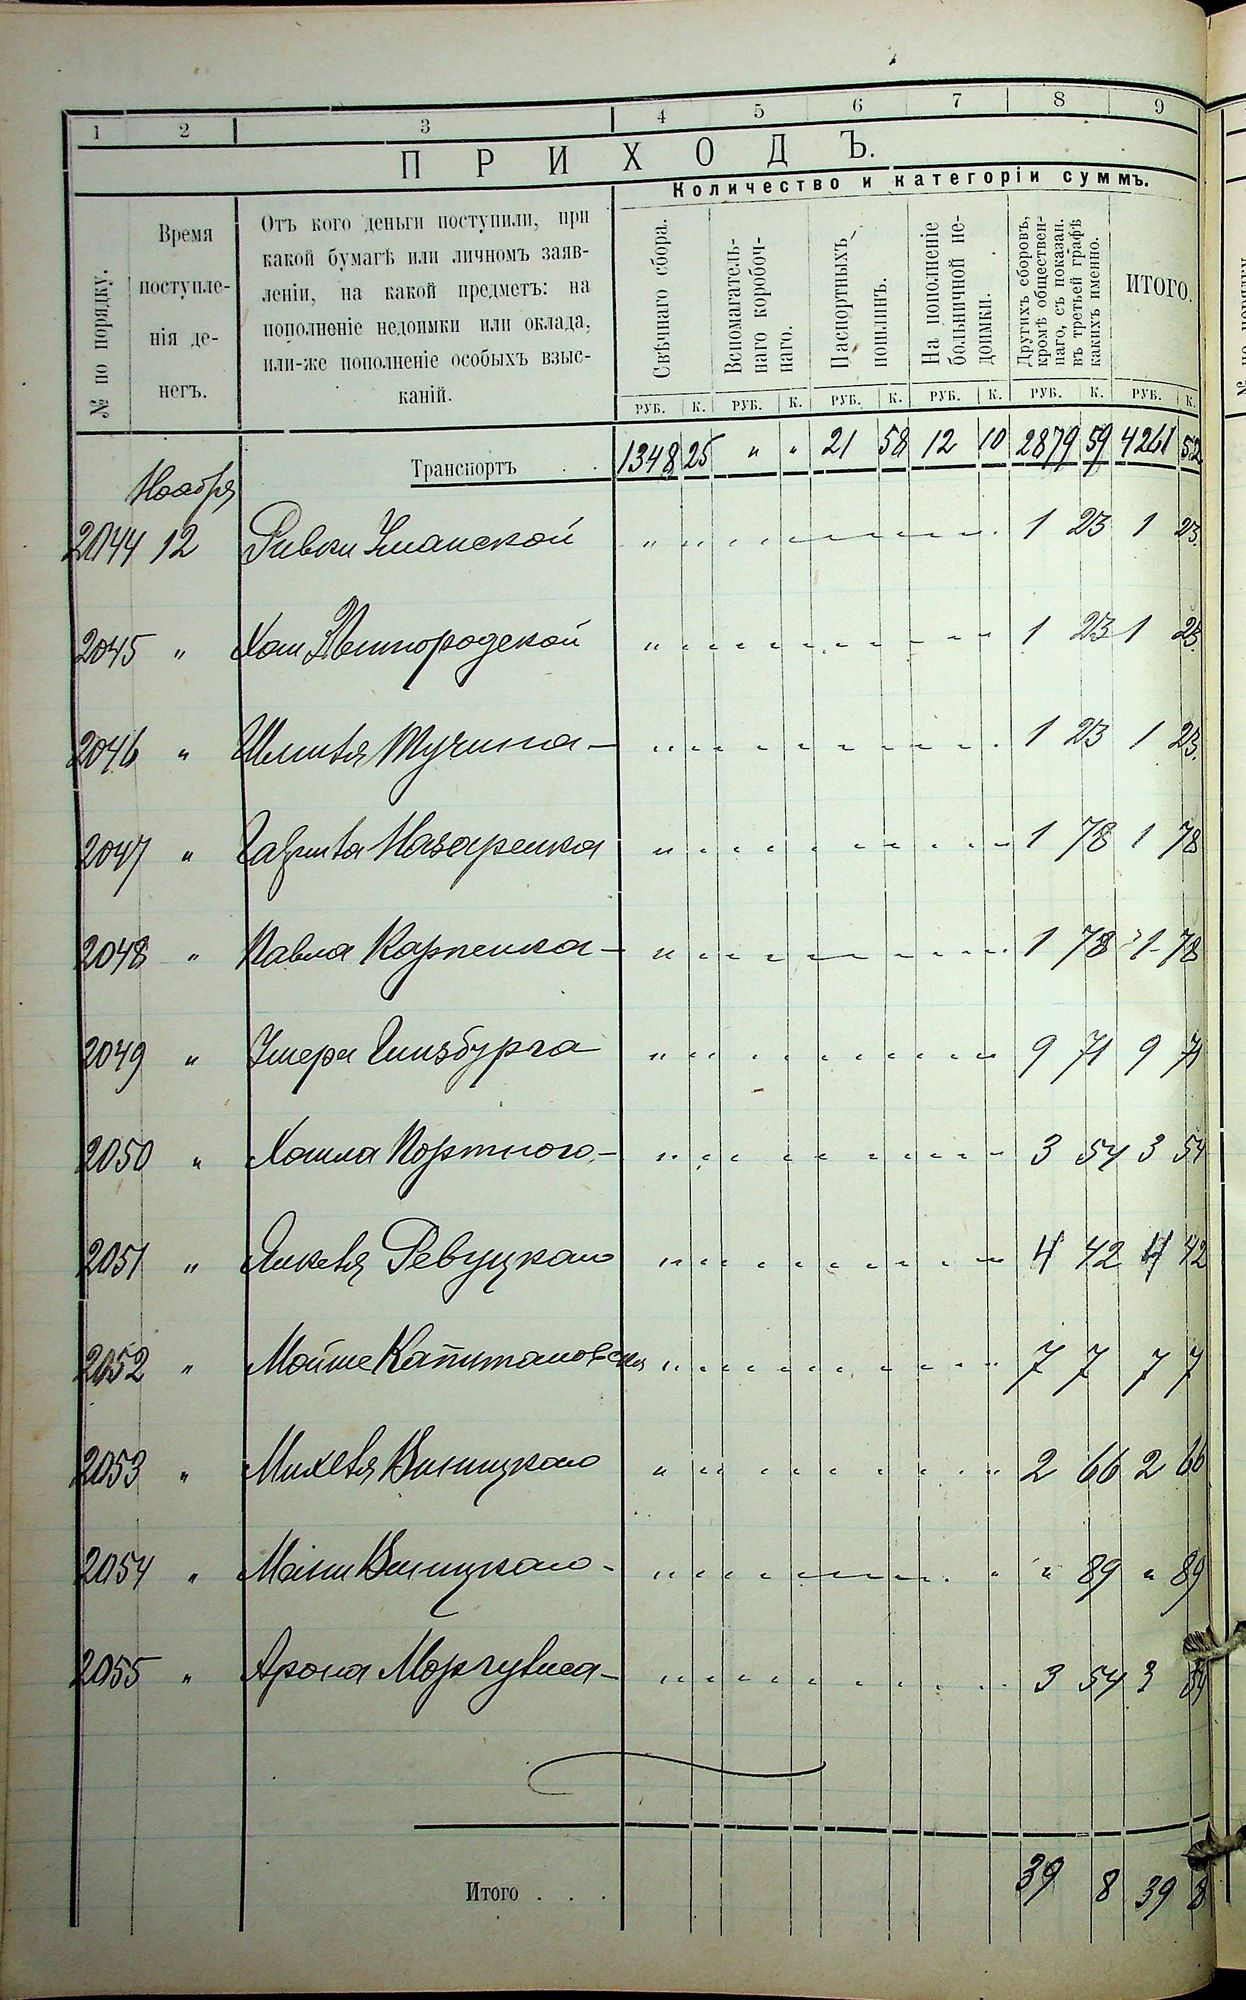 1 2 3 4 5 6 7 8 9
ПРИХОДЪ.
Количество и категоріи суммъ.
№ по порядку.
Время поступле-
нія де-
негъ.
Отъ кого деньги поступили, при
какой бумагѣ или личномъ заяв-
леніи, на какой предметъ: на
пополненіе недоимки или оклада,
или-же пополненіе особыхъ взыс-
каній.
Свѣчнаго сбора.
Вспомагатель-
наго коробоч-
наго.
Паспортныхъ
пошлинъ.
На пополненіе
больничной не-
доимки.
Другихъ сборовъ,
кромѣ обществен-
наго, съ показан.
въ третьей графѣ
какихъ именно.
ИТОГО.
РУБ. К. РУБ. К. РУБ. К. РУБ. К. РУБ. К. РУБ. К.
Транспортъ . . 1348 25 " " 21 58 12 10 2879 59 4261 52
Ноября
2044 12 Ривки Уманской " 1 23 1 23.
2045 " Хаи Звѣнигородской " 1 23 1 23.
2046 " Тучина " 1 23 1 23.
2047 " Назаренка " 1 78 1 78
2048 " Павла Карпенка " 1 78 1 78
2049 " Гинзбурга " 9 71 9 71
2050 " Портного " 3 54 3 54
2051 " Янкеля Ревуцкаго " 4 42 4 42
2052 " Мойше " 7 7 7 7
2053 " Михеля Виницкаго " 2 66 2 66
2054 " Виницкаго " " 89 " 89
2055 " Арона Моргулиса " 3 54 3 54
Итого . . . 39 8 39 8